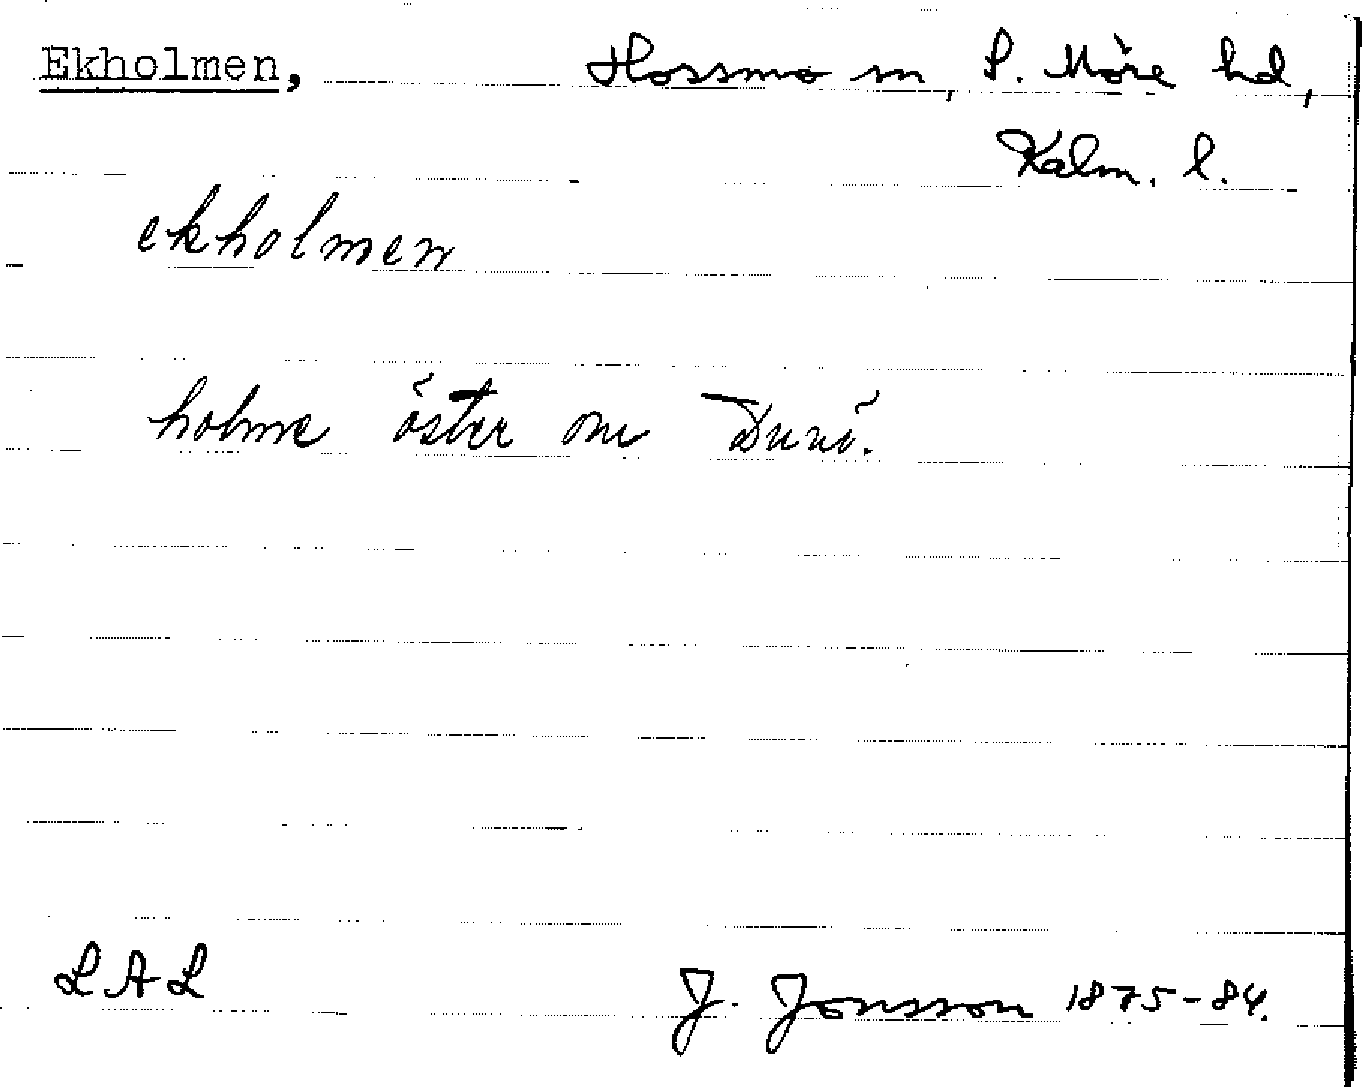 Ekholmen, Hossmo sn, S. Möre hd,
Kalm. l.
ekholmen
holme öster om Dunö.
LAL J. Jonsson 1875-84.